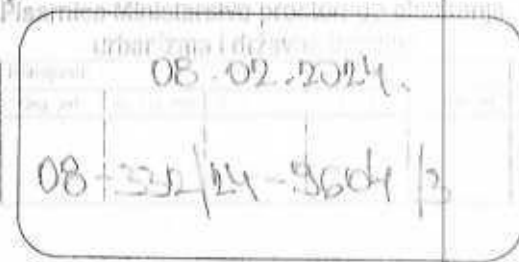 Pisarnica Ministarstvo prostornog planiranja
urbanizma i državne imovine
08-02-2024.
08-332/24-9604/3